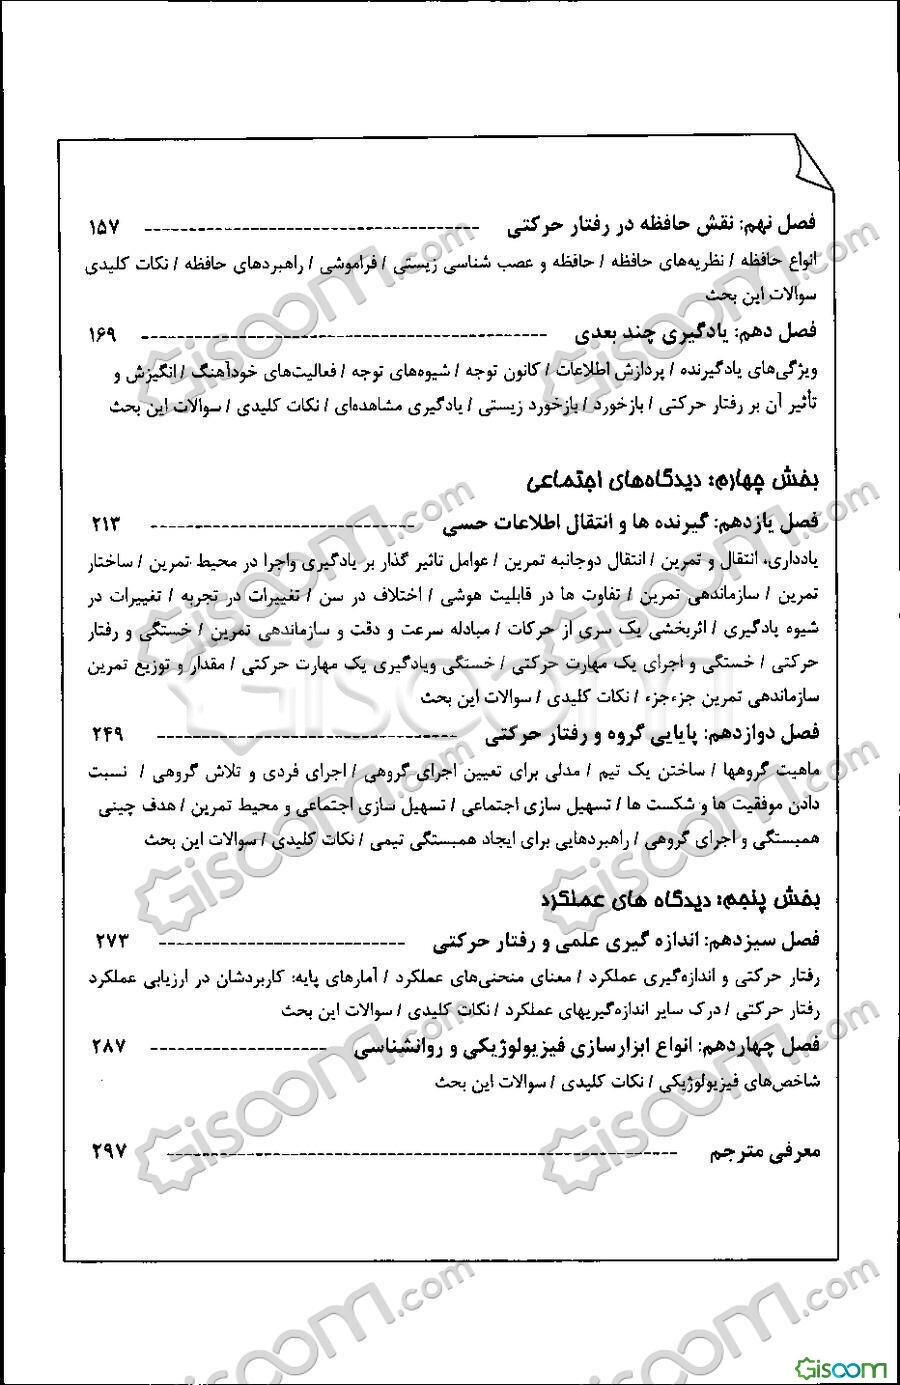 فصل نهم: نقش حافظه در رفتار حرکتی ---------------------------------------- ۱۵۷
انواع حافظه / نظریه‌های حافظه / حافظه و عصب شناسی زیستی / فراموشی / راهبردهای حافظه / نکات کلیدی
سوالات این بحث
فصل دهم: یادگیری چند بعدی ---------------------------------------- ۱۶۹
ویژگی‌های یادگیرنده / پردازش اطلاعات / کانون توجه / شیوه‌های توجه / فعالیت‌های خودآهنگ / انگیزش و
تأثیر آن بر رفتار حرکتی / بازخورد / بازخورد زیستی / یادگیری مشاهده‌ای / نکات کلیدی / سوالات این بحث
بخش چهارم: دیدگاه‌های اجتماعی
فصل یازدهم: گیرنده ها و انتقال اطلاعات حسی ------------------------------ ۲۱۳
یادداری، انتقال و تمرین / انتقال دوجانبه تمرین / عوامل تاثیر گذار بر یادگیری واجرا در محیط تمرین / ساختار
تمرین / سازماندهی تمرین / تفاوت ها در قابلیت هوشی / اختلاف در سن / تغییرات در تجربه / تغییرات در
شیوه یادگیری / اثربخشی یک سری از حرکات / مبادله سرعت و دقت و سازماندهی تمرین / خستگی و رفتار
حرکتی / خستگی و اجرای یک مهارت حرکتی / خستگی ویادگیری یک مهارت حرکتی / مقدار و توزیع تمرین
سازماندهی تمرین جزءجزء / نکات کلیدی / سوالات این بحث
فصل دوازدهم: پایایی گروه و رفتار حرکتی ---------------------------------- ۲۴۹
ماهیت گروهها / ساختن یک تیم / مدلی برای تعیین اجرای گروهی / اجرای فردی و تلاش گروهی / نسبت
دادن موفقیت ها و شکست ها / تسهیل سازی اجتماعی / تسهیل سازی اجتماعی و محیط تمرین / هدف چینی
همبستگی و اجرای گروهی / راهبردهایی برای ایجاد همبستگی تیمی / نکات کلیدی / سوالات این بحث
بخش پنجم: دیدگاه های عملکرد
فصل سیزدهم: اندازه گیری علمی و رفتار حرکتی ---------------------------- ۲۷۳
رفتار حرکتی و اندازه‌گیری عملکرد / معنای منحنی‌های عملکرد / آمارهای پایه: کاربردشان در ارزیابی عملکرد
رفتار حرکتی / درک سایر اندازه‌گیریهای عملکرد / نکات کلیدی / سوالات این بحث
فصل چهاردهم: انواع ابزارسازی فیزیولوژیکی و روانشناسی -------------------- ۲۸۷
شاخص‌های فیزیولوژیکی / نکات کلیدی / سوالات این بحث
معرفی مترجم ---------------------------------------------------------- ۲۹۷
Gisoom